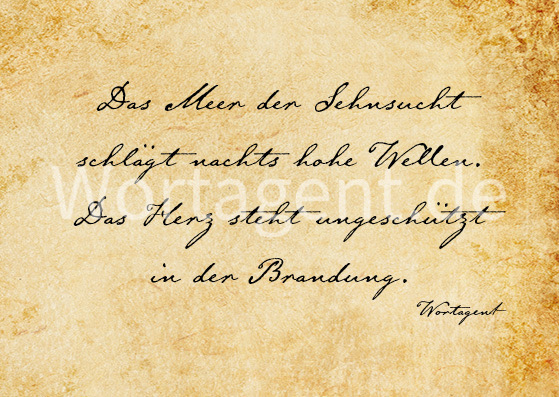 Das Meer der Sehnsucht
schlägt nachts hohe Wellen.
Wortagent.de
Das Herz steht ungeschützt
in der Brandung.
Wortagent